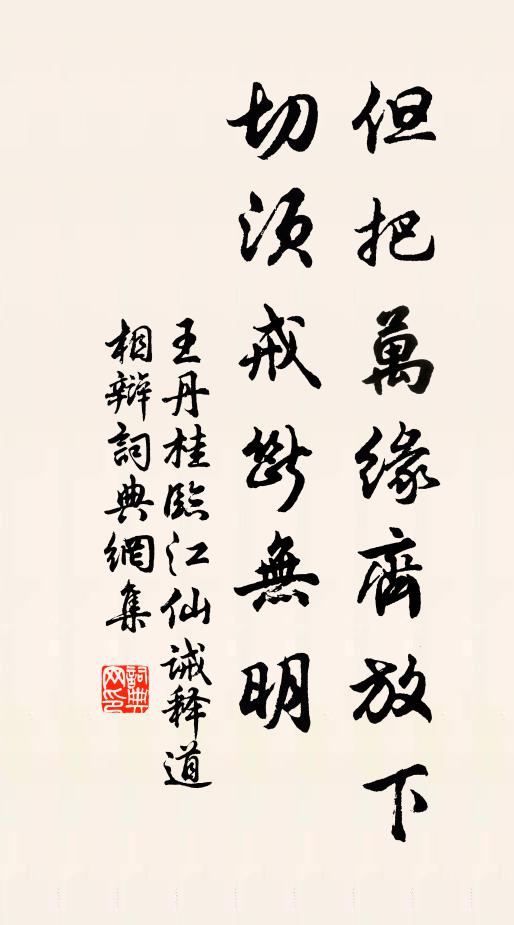 但把萬緣齊放下
切須戒斷無明
王丹桂臨江仙诫释道
相辯詞典網集
詞典網印